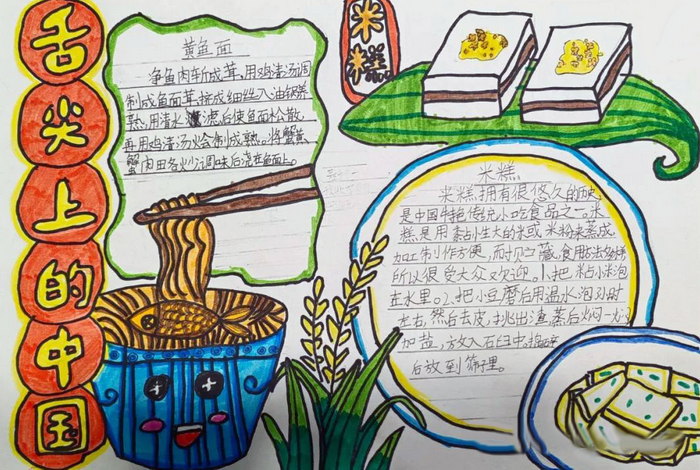 舌尖上的中国
黄鱼面
净鱼肉斩成茸,用鸡清汤调
制成鱼面茸,挤成细丝入油锅养
熟,用清水漂后使鱼面松散,
再用鸡清汤火会制成熟。将蟹黄、
蟹肉田各火少调味后浇在鱼面上。
米糕
米糕
米糕拥有很悠久的历史,
是中国传统小吃食品之一。米
糕是用黏小生大的米或米粉来蒸成,
加工制作方便,而才贮藏,食用方法多样
所以很受大众欢迎。1、把粘小米泡
在水里。2、把小豆磨后用温水泡3小时
左右,然后去皮,挑出渣,蒸后焖一
加盐,放入石臼中
后放到筛子里。